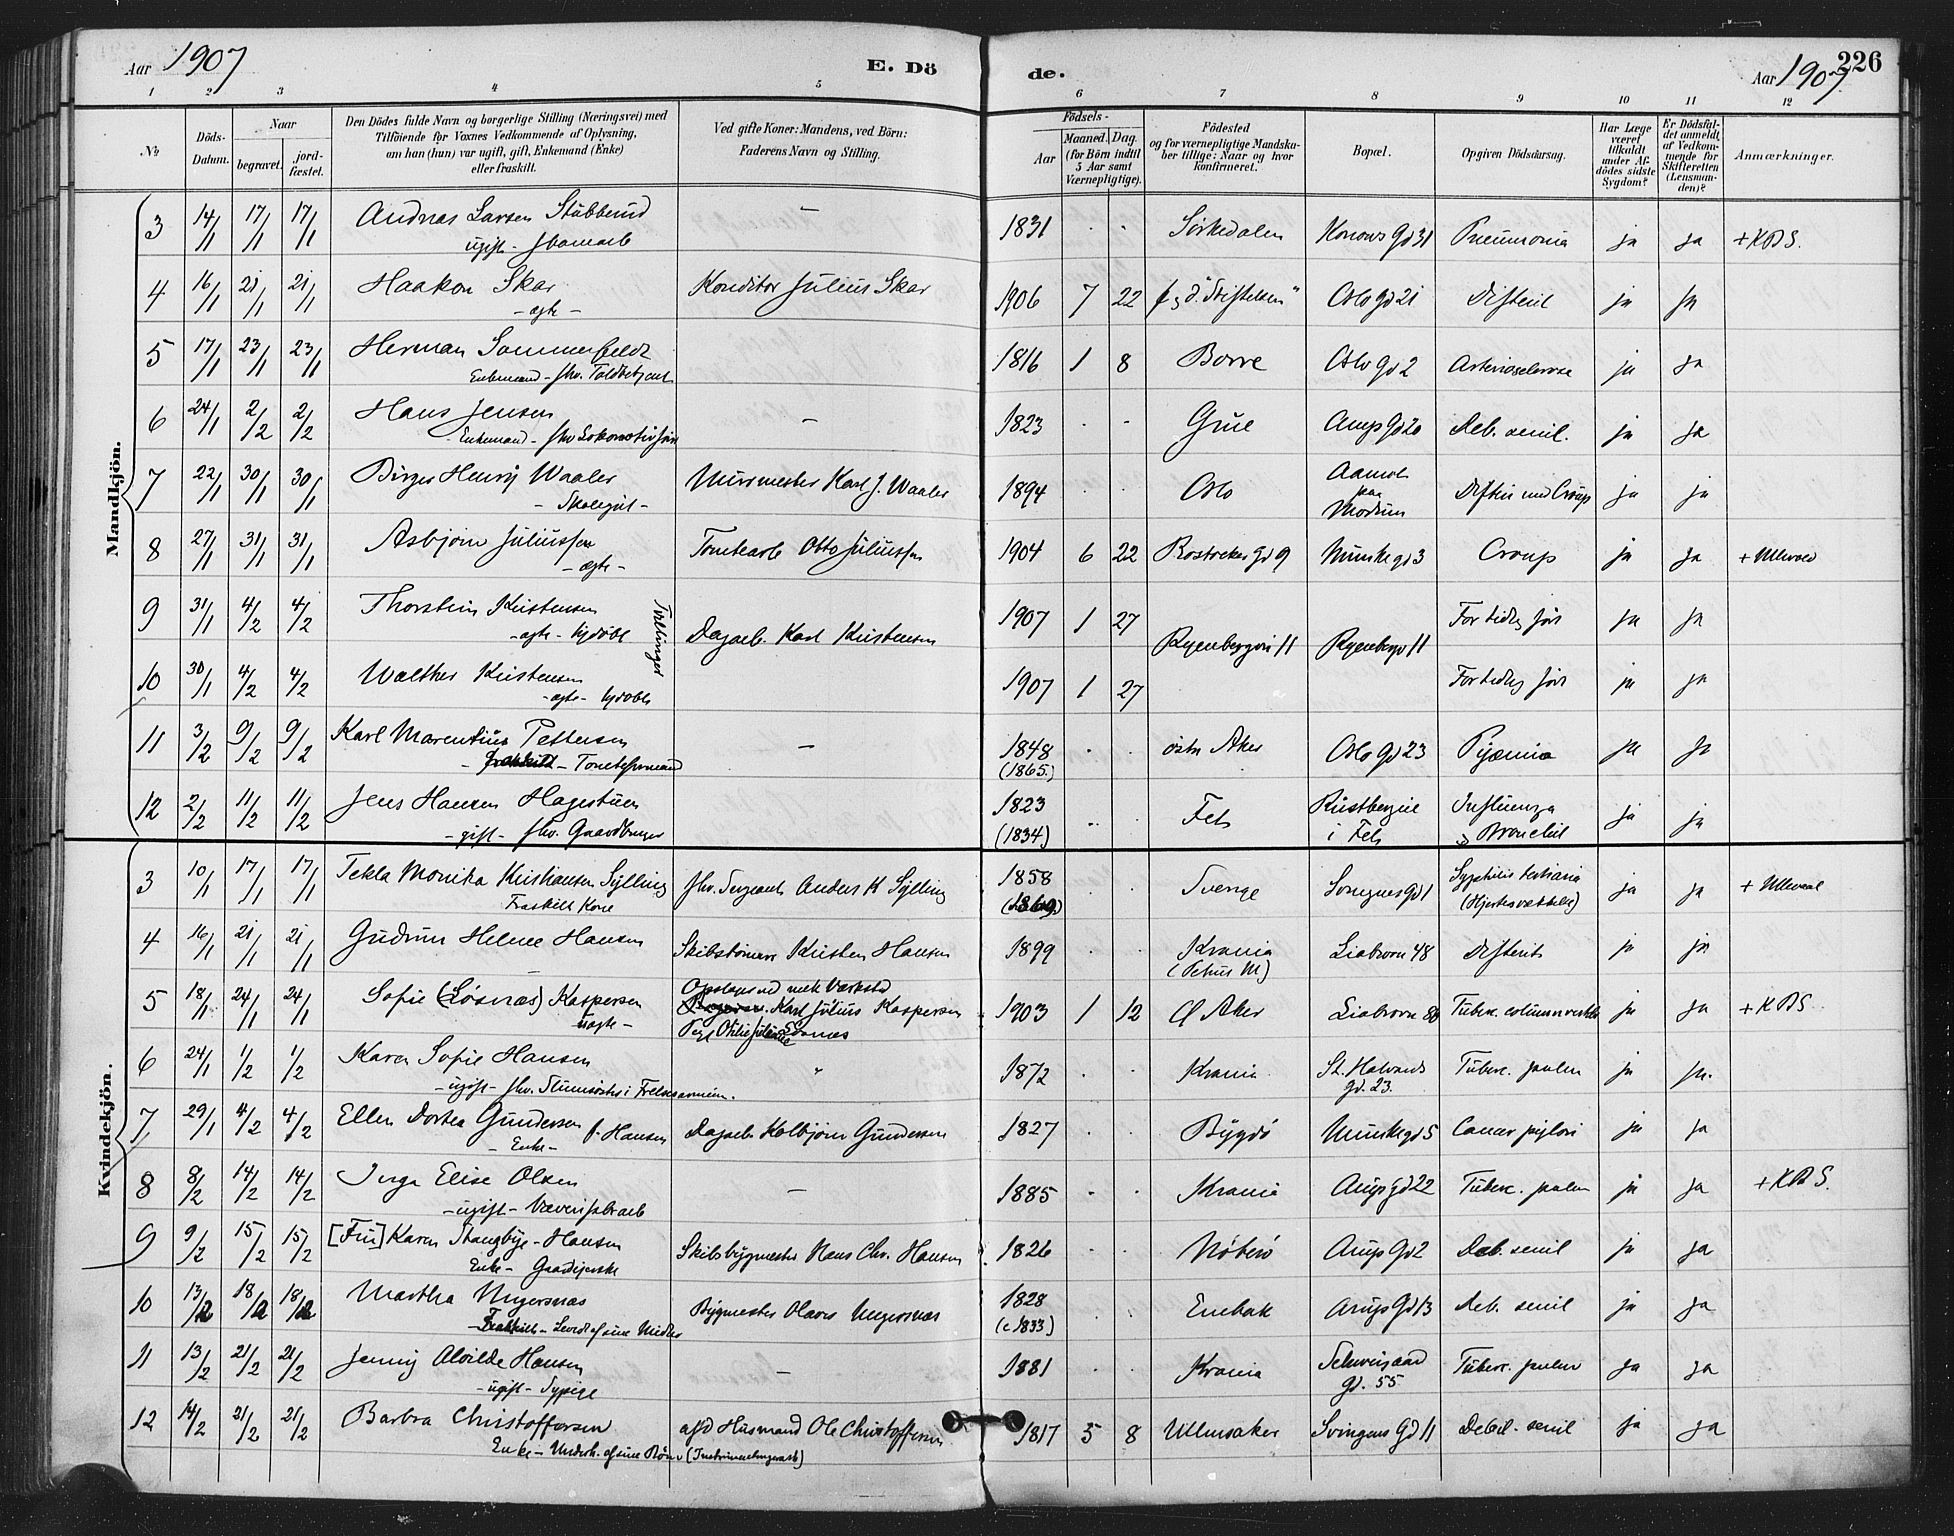 Aar 1907 E. Dö de. Aar 1907 226
1 2 3 4 5 6 7 8 9 10 11 12
№ Döds-Datum. Naar begravet. jordfæstet. Den Dödes fulde Navn og borgerlige Stilling (Næringsvei) med Tilföiende for Voxnes Vedkommende af Oplysning, om han (hun) var ugift, gift, Enkemand (Enke) eller fraskilt. Ved gifte Koner: Mandens, ved Börn: Faderens Navn og Stilling. Födsels- Aar Maaned. Dag. (for Börn indtil 5 Aar samt Værnepligtige). Födested og for værnepligtige Mandskaber tillige: Naar og hvor konfirmeret. Bopæl. Opgiven Dödsaarsag. Har Læge været tilkaldt under Afdödes sidste Sygdom? Er Dödsfaldet anmeldt af Vedkommende for Skifteretten (Lensmanden)? Anmærkninger.
Mandkjön.
3 14/1 17/1 17/1 Andreas Larsen Stubberud — 1831 . . Sörkedalen Konows Gd 31 Pneumonia ja ja + KDS.
ugift -
4 16/1 21/1 21/1 Haakon Skar Konditor Julius Skar 1906 7 22 "Stiftelsen" Oslo gd 21 Difterit ja ja
- ægte -
5 17/1 23/1 23/1 Herman Sommerfeldt 1816 1 8 Borre Oslo Gd 2 Arteriosclerose ja ja
Enkemand - fhv. Toldbetjent
6 24/1 2/2 2/2 Hans Jensen — 1823 . . Grue Arups Gd 20 Deb. senil. ja ja
Enkemand - fhv Lokomotivförer
7 22/1 30/1 30/1 Birger Henrij Waaler Murmester Karl J. Waaler 1894 . . Oslo Aamot paa Modum Difteri med Croup ja ja
- Skolegut -
8 27/1 31/1 31/1 Asbjörn Juliussen Tomtearb Otto Juliussen 1904 6 22 Rostockes Gd 9 Munkegd 3 Croup ja ja + Ullevaal
- ægte -
9 31/1 4/2 4/2 Thorstein Kristensen Tvillinger Dagarb. Karl Kristensen 1907 1 27 Ryenbergvei 11 Ryenbergv 11 For tidlig föds ja ja
- ægte - hjdöbt
10 30/1 4/2 4/2 Walther Kristensen 1907 1 27 For tidlig föds ja ja
- ægte - hjdöbt
11 3/2 9/2 9/2 Karl Marentius Pettersen — 1848 . . östre Aker Oslo Gd 23 Pyæmia ja ja
- Fraskilt - Tomteformand (1865.)
12 2/2 11/2 11/2 Jens Hansen Hagestuen 1823 . . Fet Rustbergie i Fet Influenza & Bronchit ja ja
- gift - fhv. Gaardbruger (1834)
Kvindekjön.
3 10/1 17/1 17/1 Tekla Monika Kristiansen Sylling fhv. Sergeant Anders K Sylling 1858 . . Sverge Somgnes Gd 1 Syphilis tertiaria (Hjertesvækkelse) ja ja + Ullevaal
Fraskilt Kone
4 16/1 21/1 21/1 Gudrun Helene Hansen Skibstömmr Kristen Hansen 1899 . . Krania (Petrus M) Liabroen 48 Difterit ja ja
5 18/1 24/1 24/1 Sofie (Lösnæs) Kaspersen Opslager ved mek Værksted Karl Julius Kaspersen 1903 1 12 Ø Aker Liabroen 86 Tuberc. column vertebr ja ja + KDS
uægte -
6 24/1 1/2 1/2 Karen Sofie Hansen " 1872 . . Krania St. Halvards gd. 23. Tuberc. pulm ja ja.
- ugift - fhv. Slumsöster i Frelsesarmeen.
7 29/1 4/2 4/2 Ellen Dortea Gundersen f. Hansen Dagarb Kolbjörn Gundersen 1827 . . Bygdö Munkegd 5 Cancer pylori ja ja
- Enke -
8 8/2 14/2 14/2 Inga Elise Olsen — 1885 . . Krania Arups Gd 22 Tuberc. pulm ja ja + KDS.
- ugift - Væverifabrarb
9 9/2 15/2 15/2 [Fru] Karen Stangbye - Hansen Skibsbygmester Hans Chr. Hansen 1826 . . Nöterö Arups Gd 2 Deb. senil ja ja
Enke - Gaardejerske
10 13/2 18/2 18/2 Martha Ungersnæs Bygmester Olaves Ungersnæs 1828 (c 1833) . . Enebak Arups Gd 13 Deb. senil ja ja
- Fraskilt - Levede af sine Midler
11 13/2 21/2 21/2 Jenny Alvilde Hansen — 1881 . . Krania Schweigaard gd. 55 Tuberc. pulm ja ja
- ugift - Sypige
12 14/2 21/2 21/2 Barbra Christoffersen afd Husmand Ole Christoffersen 1817 5 8 Ullensaker Svingens Gd 11 Debil. senil ja ja
Enke - Underh. af sine Börn